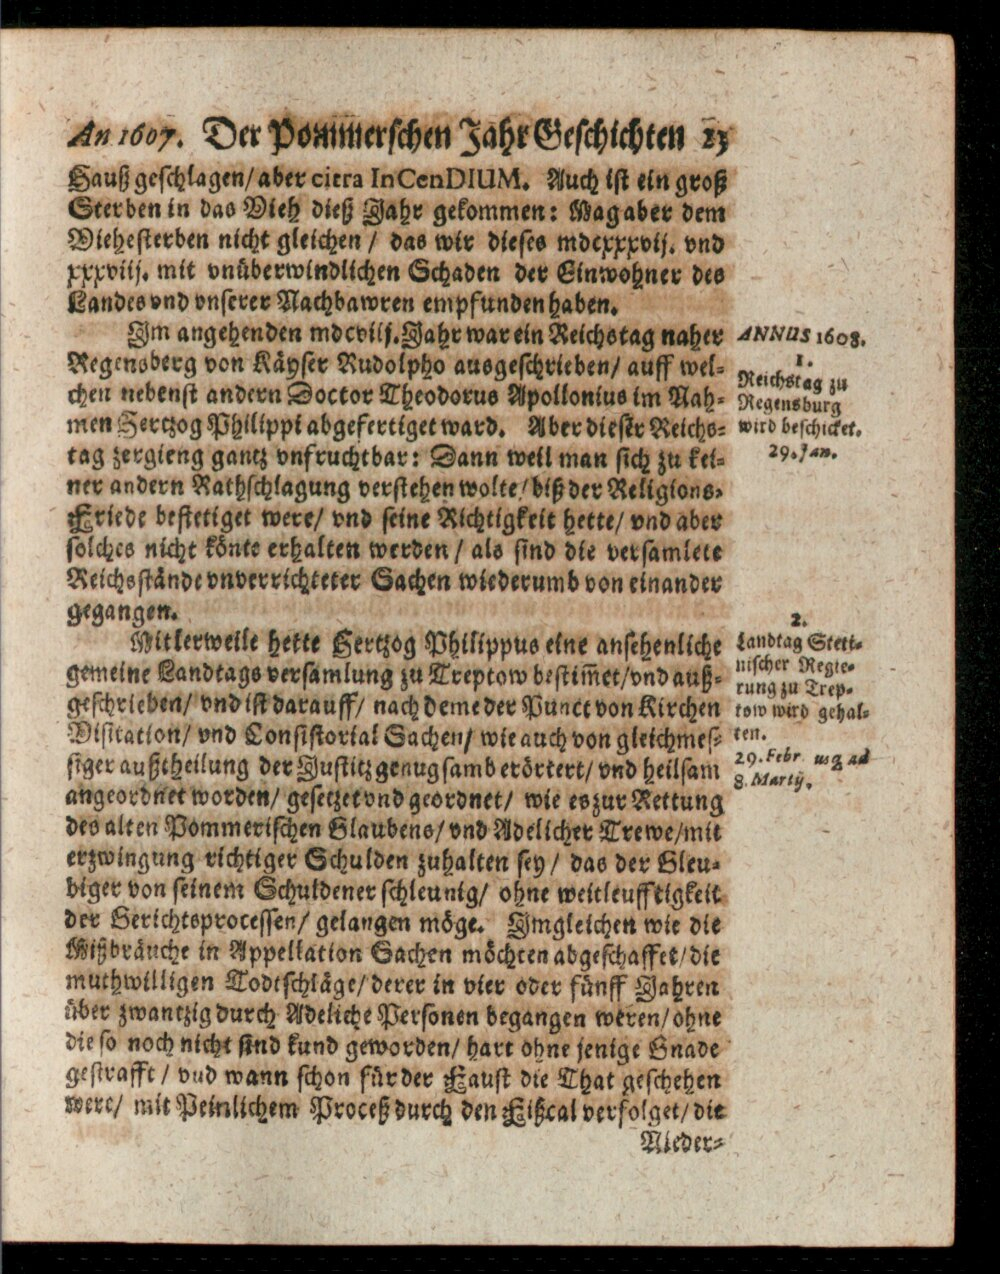 An 1607. Der Pommerschen Jahr Geschichten 23
Hauß geschlagen/ aber citra InCenDIUM. Auch ist ein groß
Sterben in das Vieh dieß Jahr gekommen: Mag aber dem
Viehesterben nicht gleichen / das wir dieses mdcxxxvij. vnd
xxxviij. mit vnüberwindlichen Schaden der Einwohner des
Landes vnd vnserer Nachbawren empfunden haben.
Im angehenden mdcviij. Jahr war ein Reichstag naher
Regensberg von Käyser Rudolpho ausgeschrieben/ auff wel-
chen nebenst andern Doctor Theodorus Apollonius im Nah-
men Hertzog Philippi abgefertiget ward. Aber dieser Reichs-
tag zergieng gantz vnfruchtbar: Dann weil man sich zu kei-
ner andern Rathschlagung verstehen wolte/ biß der Religions-
Friede bestetiget were/ vnd seine Richtigkeit hette/ vnd aber
solches nicht könte erhalten werden / als sind die versamlete
Reichsstände vnverrichteter Sachen wiederumb von einander
gegangen.
ANNUS 1608.
1.
Reichstag zu
Regensburg
wird beschicket.
29. Jan.
Mitlerweile hette Hertzog Philippus eine ansehenliche
gemeine Landtags versamlung zu Treptow bestim̃et/ vnd auß-
geschrieben/ vnd ist darauff/ nach deme der Punct von Kirchen
Visitation/ vnd Consistorial Sachen/ wie auch von gleichmes-
siger außtheilung der Justitz genugsamb erörtert/ vnd heilsam
angeordnet worden/ gesetzet vnd geordnet/ wie es zur Rettung
des alten Pommerischen Glaubens/ vnd Adelicher Trewe/ mit
erzwingung richtiger Schulden zuhalten sey / das der Gleu-
biger von seinem Schuldener schleunig/ ohne weitleufftigkeit
der Gerichtsprocessen/ gelangen möge. Imgleichen wie die
Mißbräuche in Appellation Sachen möchten abgeschaffet/ die
muthwilligen Todtschläge/ derer in vier oder fünff Jahren
über zwantzig durch Adeliche Personen begangen weren/ ohne
die so noch nicht sind kund geworden/ hart ohne jenige Gnade
gestrafft / vnd wann schon für der Faust die That geschehen
were/ mit Peinlichem Proceß durch den Fißcal verfolget/ die
Nieder-
2.
Landtag Steti-
nischer Regie-
rung zu Trep-
tow wird gehal-
ten.
29. Febr usq ad
8. Martij.